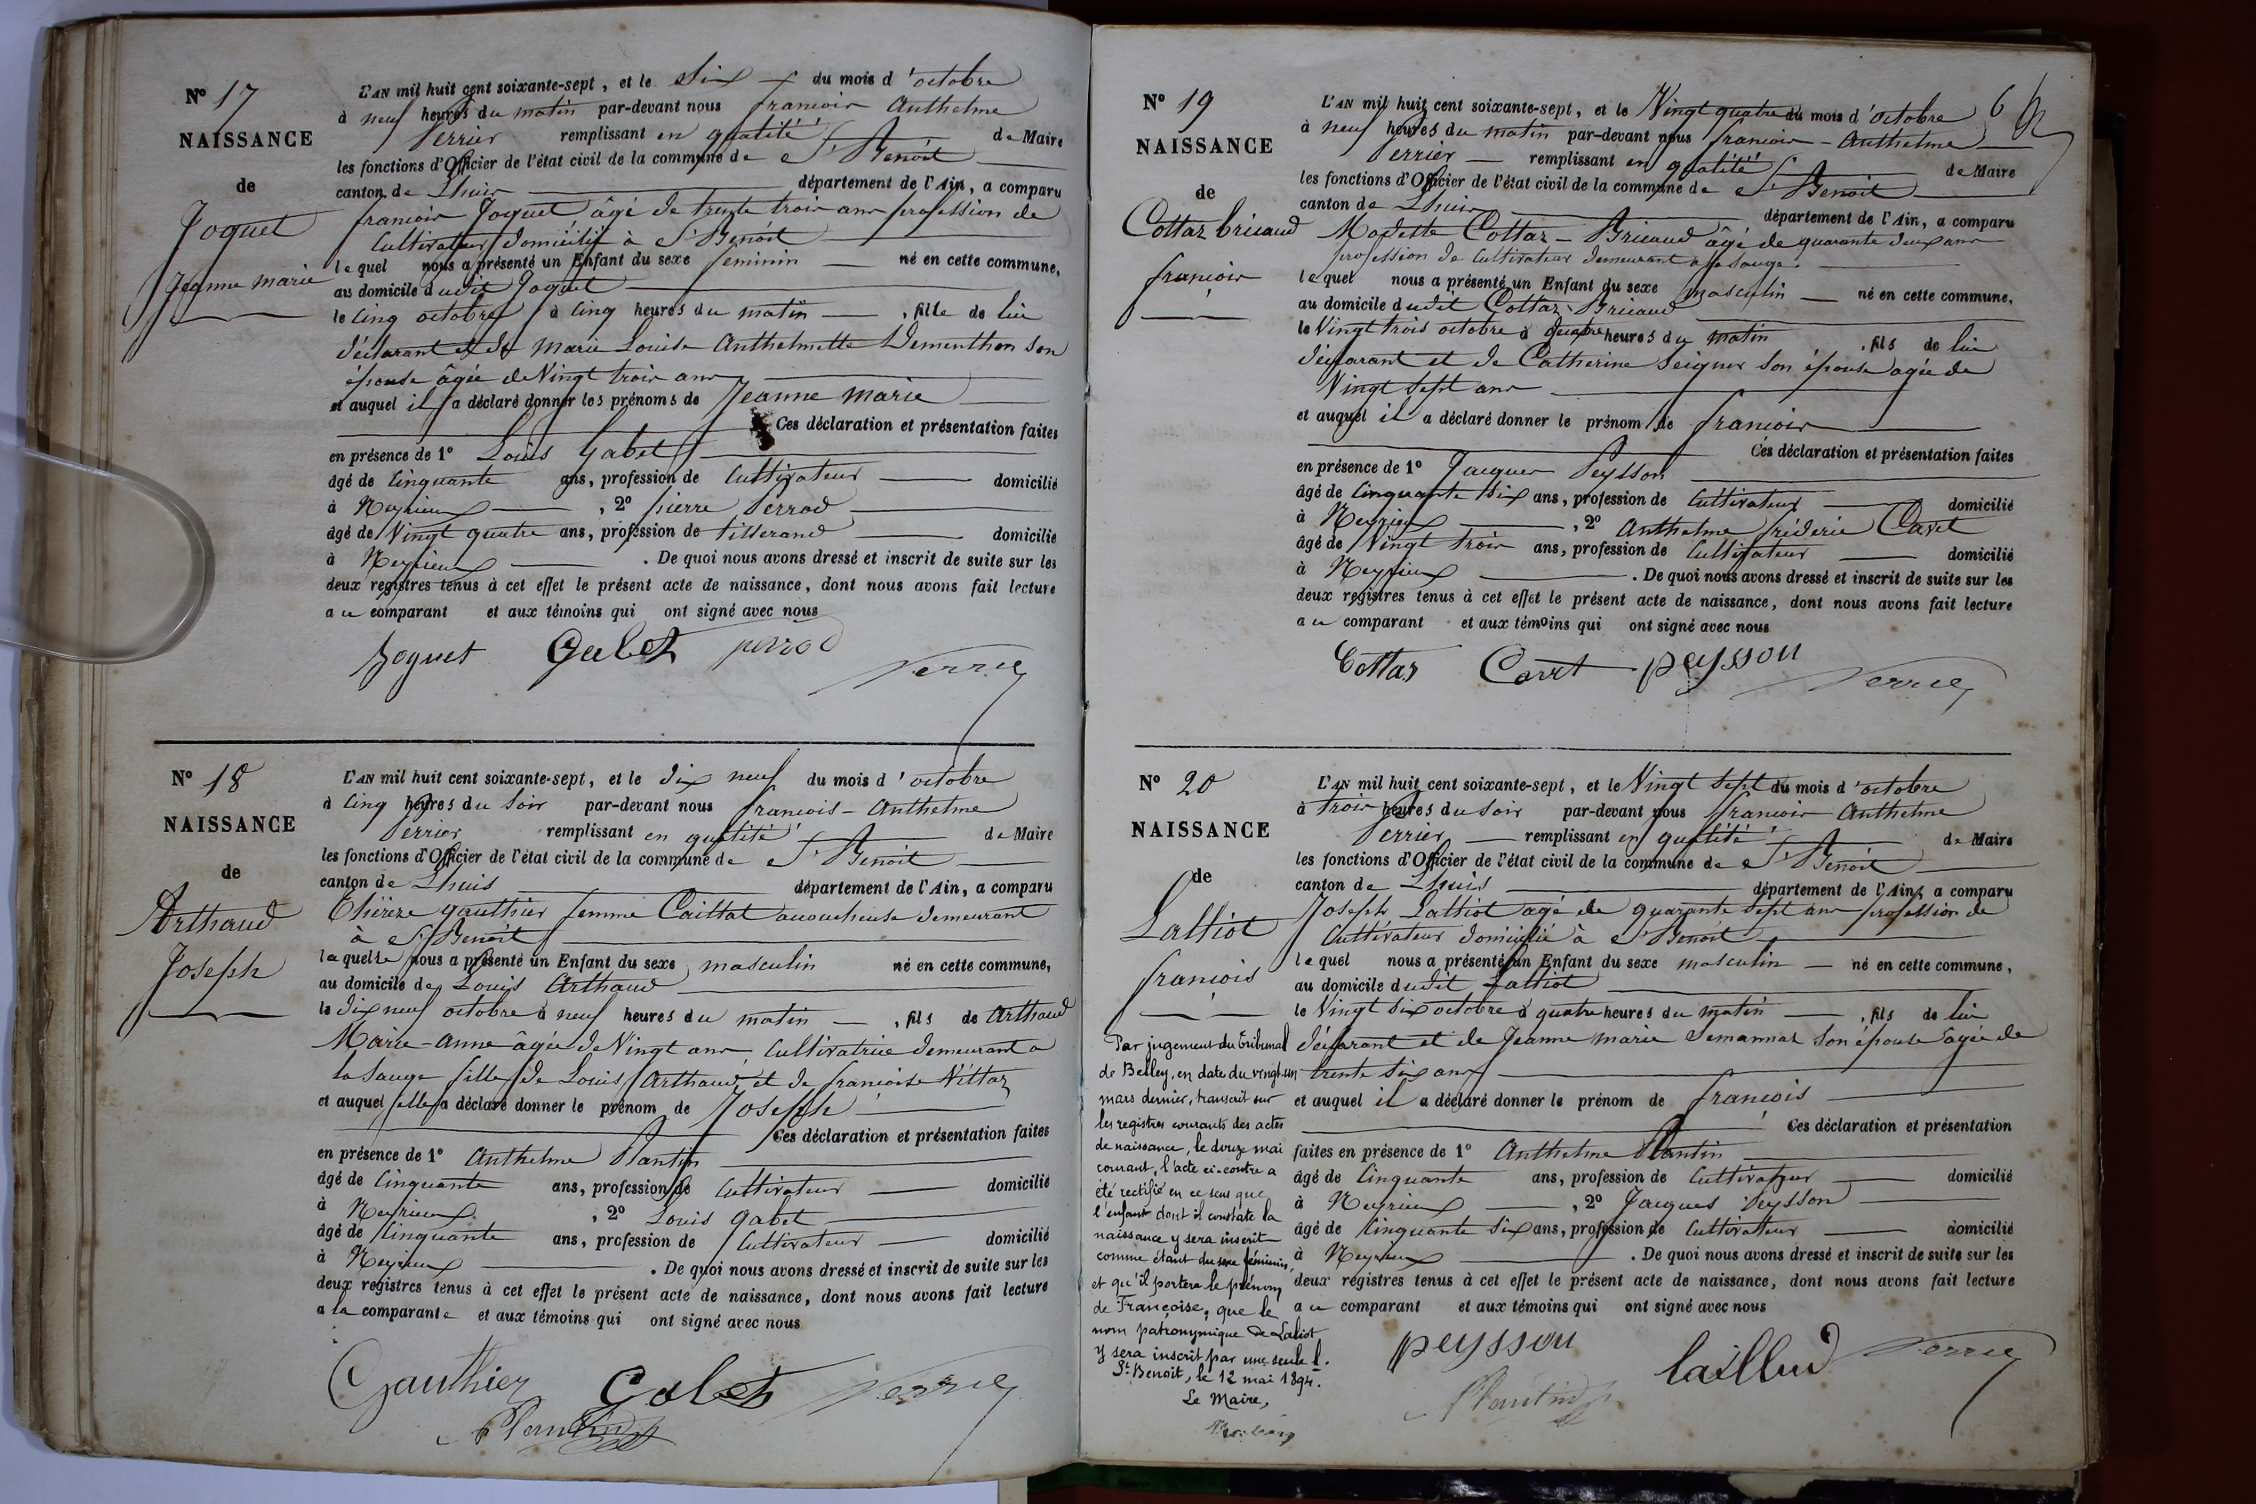 N° 17
NAISSANCE
de
Joguet
Jeanne marie
L'AN mil huit cent soixante-sept, et le Six du mois d'octobre
à neuf heures du matin par-devant nous francois Anthelme
Perrier remplissant en qualité de Maire
les fonctions d'Officier de l'état civil de la commune de St Benoit
canton de Lhuis département de l'Ain, a comparu
francois Joguet âgé de trente trois ans profession de
Cultivateur domicilié à St Benoit
lequel nous a présenté un Enfant du sexe feminin né en cette commune,
au domicile dudit Joguet
le Cinq octobre à Cinq heures du matin, fille de lui
déclarant et de marie Louise Anthelmette Dementhon son
épouse âgée de Vingt trois ans
et auquel il a déclaré donner les prénoms de Jeanne marie
Ces déclaration et présentation faites
en présence de 1° Louis Gabet
âgé de Cinquante ans, profession de Cultivateur domicilié
à Neyrieux, 2° pierre Perrod
âgé de Vingt quatre ans, profession de tisserand domicilié
à Neyrieux. De quoi nous avons dressé et inscrit de suite sur les
deux registres tenus à cet effet le présent acte de naissance, dont nous avons fait lecture
au comparant et aux témoins qui ont signé avec nous
Joguet Gabet perrod
Perrier
N° 18
NAISSANCE
de
Arthaud
Joseph
L'AN mil huit cent soixante-sept, et le dix neuf du mois d'octobre
à Cinq heures du Soir par-devant nous francois-Anthelme
Perrier remplissant en qualité de Maire
les fonctions d'Officier de l'état civil de la commune de St Benoit
canton de Lhuis département de l'Ain, a comparu
Thérèze gauthier femme Caillat accoucheuse demeurant
à St Benoit
laquelle nous a présenté un Enfant du sexe masculin né en cette commune,
au domicile de Louis Arthaud
le dix neuf octobre à neuf heures du matin, fils de Arthaud
Marie-anne âgée de Vingt ans Cultivatrice demeurant a
la Sauge fille de Louis Arthaud et de francoise Vittoz
et auquel elle a déclaré donner le prénom de Joseph
Ces déclaration et présentation faites
en présence de 1° Anthelme Plantin
âgé de Cinquante ans, profession de Cultivateur domicilié
à Neyrieux, 2° Louis Gabet
âgé de Cinquante ans, profession de Cultivateur domicilié
à Neyrieux. De quoi nous avons dressé et inscrit de suite sur les
deux registres tenus à cet effet le présent acte de naissance, dont nous avons fait lecture
a la comparante et aux témoins qui ont signé avec nous
Gauthier Gabet Perrier
Plantin
6
N° 19
NAISSANCE
de
Cottaz bricaud
francois
L'AN mil huit cent soixante-sept, et le Vingt quatre du mois d'octobre
à neuf heures du matin par-devant nous francois-Anthelme
Perrier remplissant en qualité de Maire
les fonctions d'Officier de l'état civil de la commune de St Benoit
canton de Lhuis département de l'Ain, a comparu
Modeste Cottaz-Bricaud âgé de quarante deux ans
profession de Cultivateur demeurant a la Sauge
lequel nous a présenté un Enfant du sexe masculin né en cette commune,
au domicile dudit Cottaz Bricaud
le Vingt trois octobre à quatre heures du matin, fils de lui
déclarant et de Catherine Seigner son épouse agée de
Vingt Sept ans
et auquel il a déclaré donner le prénom de francois
Ces déclaration et présentation faites
en présence de 1° Jacques Peysson
âgé de Cinquante six ans, profession de Cultivateur domicilié
à Neyrieux, 2° Anthelme fréderic Carret
âgé de Vingt trois ans, profession de Cultivateur domicilié
à Neyrieux. De quoi nous avons dressé et inscrit de suite sur les
deux registres tenus à cet effet le présent acte de naissance, dont nous avons fait lecture
au comparant et aux témoins qui ont signé avec nous
Cottaz Carret peysson
Perrier
N° 20
NAISSANCE
de
Lalliot
francois
L'AN mil huit cent soixante-sept, et le Vingt Sept du mois d'octobre
à trois heures du Soir par-devant nous francois Anthelme
Perrier remplissant en qualité de Maire
les fonctions d'Officier de l'état civil de la commune de St Benoit
canton de Lhuis département de l'Ain, a comparu
Joseph Lalliot agé de quarante Sept ans profession de
Cultivateur domicilié à St Benoit
lequel nous a présenté un Enfant du sexe masculin né en cette commune,
au domicile dudit Lalliot
le Vingt six octobre à quatre heures du matin, fils de lui
déclarant et de Jeanne marie Semannaz Son épouse agée de
trente Six ans
et auquel il a déclaré donner le prénom de francois
Ces déclaration et présentation
faites en présence de 1° Anthelme Plantin
âgé de Cinquante ans, profession de Cultivateur domicilié
à Neyrieux, 2° Jacques Peysson
âgé de Cinquante Six ans, profession de Cultivateur domicilié
à Neyrieux. De quoi nous avons dressé et inscrit de suite sur les
deux registres tenus à cet effet le présent acte de naissance, dont nous avons fait lecture
au comparant et aux témoins qui ont signé avec nous
peysson Perrier
Plantin
Par jugement du tribunal
de Belley, en date du vingt-un
mars dernier, transcrit sur
les registres courants des actes
de naissance, le douze mai
courant, l'acte ci-contre a
été rectifié en ce sens que
l'enfant dont il constate la
naissance y sera inscrit
comme étant du sexe féminin,
et qu'il portera le prénom
de Françoise, que le
nom patronymique de Laliot
y sera inscrit par une seule l.
St Benoit, le 12 mai 1894.
Le Maire,